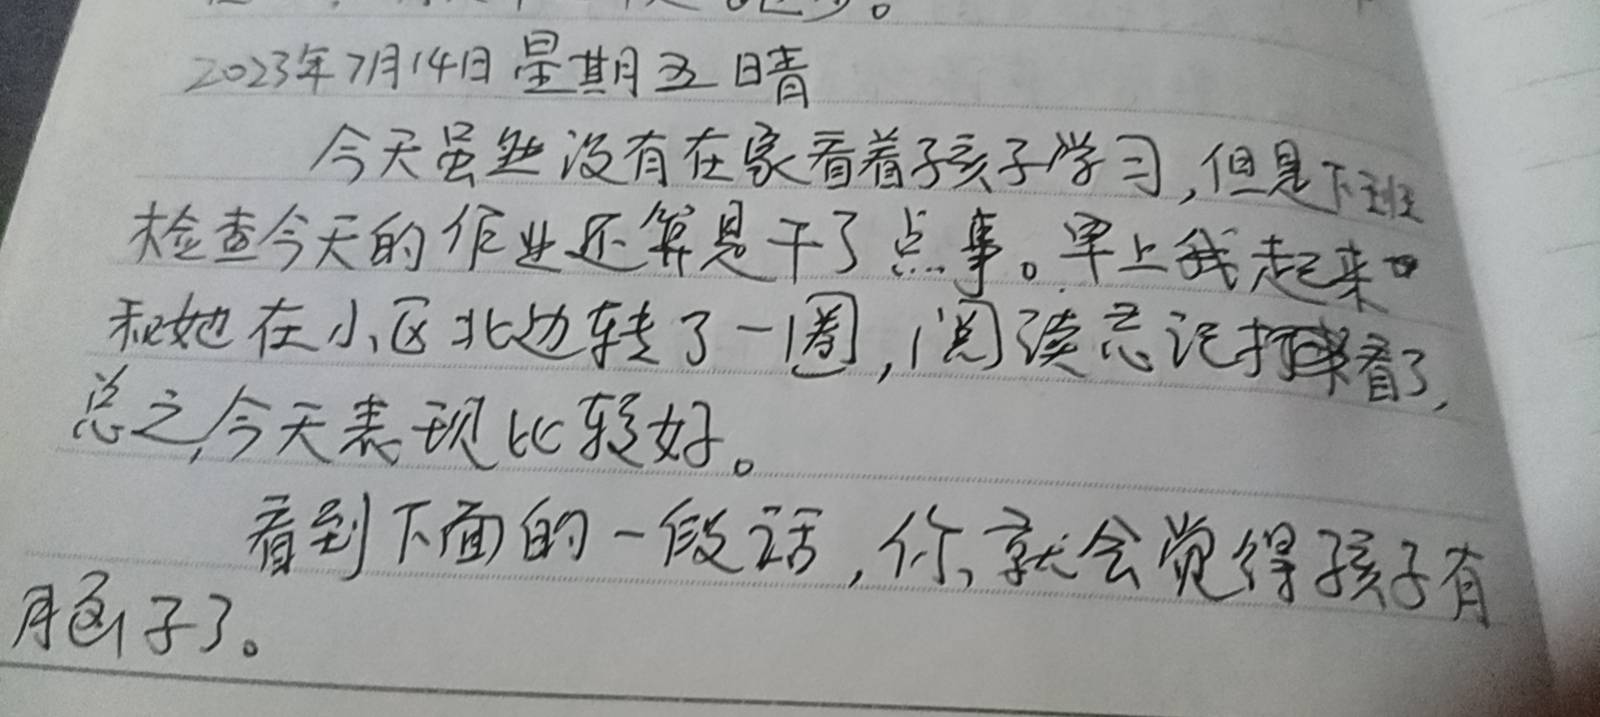 2023年7月14日 星期五 晴
今天虽然没有在家看着孩子学习,但是下班
检查今天的作业还算是干了点事。早上我起来
和她在小区北边转了一圈,阅读忘记打看了,
总之,今天表现比较好。
看到下面的一段话,你就会觉得孩子有
脑子了。